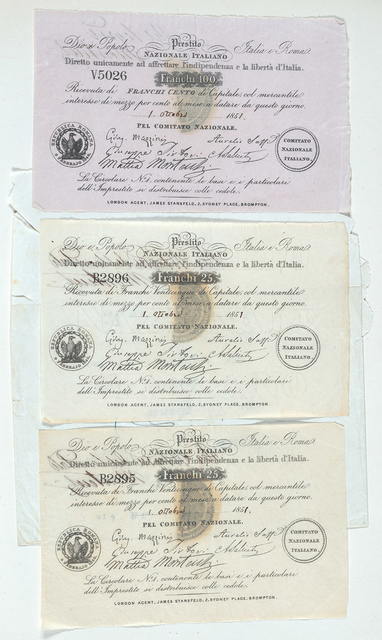 Dio e Popolo
Prestito
Italia e Roma
NAZIONALE ITALIANO
Diretto unicamente ad affrettare l'indipendenza e la libertà d'Italia.
V5026
Franchi 100
Ricevuta di FRANCHI CENTO di Capitale, col mercantile
interesse di mezzo per cento al mese a datare da questo giorno.
1. Ottobre 1851.
PEL COMITATO NAZIONALE.
Gius. Mazzini Aurelio Saffi
Giuseppe Sirtori
Mattia Montecchi
COMITATO
NAZIONALE
ITALIANO.
La Circolare Nº1. contenente le basi e i particolari
dell'Imprestito si distribuisce colle cedole.
LONDON AGENT, JAMES STANSFELD, 2, SYDNEY PLACE, BROMPTON.
Dio e Popolo
Prestito
Italia e Roma
NAZIONALE ITALIANO
Diretto unicamente ad affrettare l'indipendenza e la libertà d'Italia.
B2896
Franchi 25.
Ricevuta di Franchi Venticinque di Capitale, col mercantile
interesse di mezzo per cento al mese a datare da questo giorno.
1. Ottobre 1851
PEL COMITATO NAZIONALE.
Gius. Mazzini Aurelio Saffi
Giuseppe Sirtori
Mattia Montecchi
COMITATO
NAZIONALE
ITALIANO.
La Circolare Nº1. contenente le basi e i particolari
dell'Imprestito si distribuisce colle cedole.
LONDON AGENT, JAMES STANSFELD, 2, SYDNEY PLACE, BROMPTON.
Dio e Popolo
Prestito
Italia e Roma
NAZIONALE ITALIANO
Diretto unicamente ad affrettare l'indipendenza e la libertà d'Italia.
B2895
Franchi 25.
Ricevuta di Franchi Venticinque di Capitale, col mercantile
interesse di mezzo per cento al mese a datare da questo giorno.
1. Ottobre 1851.
PEL COMITATO NAZIONALE.
Gius. Mazzini Aurelio Saffi
Giuseppe Sirtori
Mattia Montecchi
COMITATO
NAZIONALE
ITALIANO.
La Circolare Nº1. contenente le basi e i particolari
dell'Imprestito si distribuisce colle cedole.
LONDON AGENT, JAMES STANSFELD, 2, SYDNEY PLACE, BROMPTON.